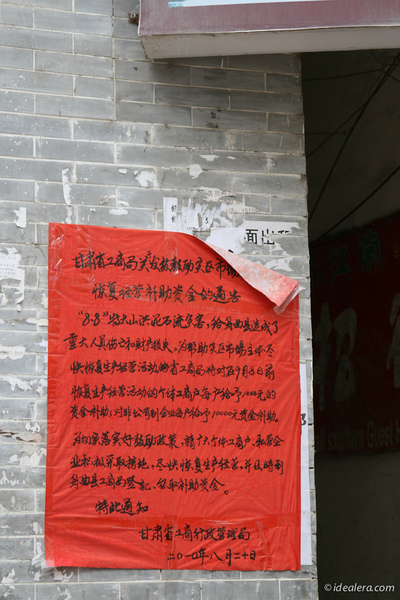 面出
甘肃省工商局关于鼓励灾区市场
恢复经营补助资金的通告
"8·8"特大山洪泥石流灾害，给舟曲县造成了
重大人员伤亡和财产损失。为帮助灾区市场主体尽
快恢复生产经营活动，省工商局将对在9月8日前
恢复生产经营活动的个体工商户每户给予1000元的
资金补助；对非公有制企业每户给予10000元资金补助。
为切实落实好鼓励政策，请广大个体工商户、私营企
业积极采取措施，尽快恢复生产经营，并及时到
舟曲县工商局登记，领取补助资金。
特此通知
甘肃省工商行政管理局
二〇一〇年八月二十日
© idealera.com